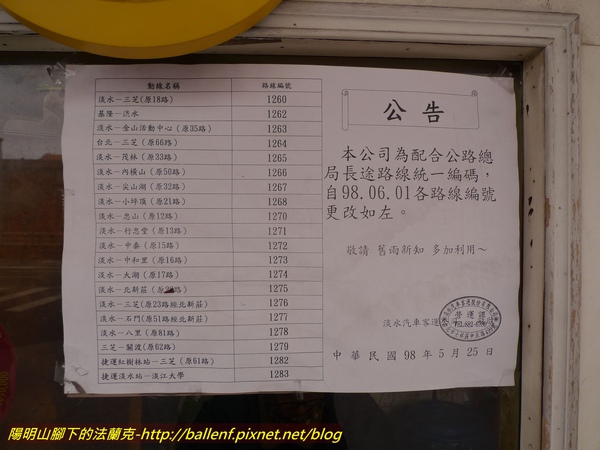 動線名稱 路線編號
淡水－三芝(原18路) 1260
基隆－淡水 1262
淡水－金山活動中心 (原35路) 1263
台北－三芝 (原66路) 1264
淡水－茂林 (原33路) 1265
淡水－內橫山 (原50路) 1266
淡水－尖山湖 (原32路) 1267
淡水－小坪頂 (原21路) 1268
淡水－忠山 (原12路) 1270
淡水－行忠堂 (原13路) 1271
淡水－中泰 (原15路) 1272
淡水－中和里 (原16路) 1273
淡水－大湖 (原17路) 1274
淡水－北新莊 1275
淡水－三芝(原23路經北新莊) 1276
淡水－石門(原51路經北新莊) 1277
淡水－八里 (原81路) 1278
三芝－關渡(原62路) 1279
捷運紅樹林站－三芝 (原61路) 1282
捷運淡水站－淡江大學 1283
公告
本公司為配合公路總
局長途路線統一編碼，
自98.06.01各路線編號
更改如左。
敬請 舊雨新知 多加利用～
淡水汽車客運
營運課
中華民國98年5月25日
陽明山腳下的法蘭克-http://ballenf.pixnet.net/blog